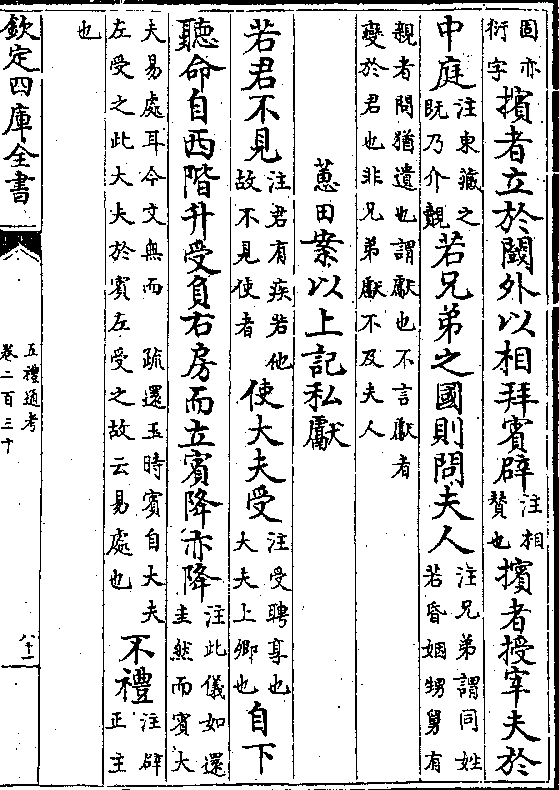 固亦衍字擯者立於閾外以相拜賓辟注相贊也擯者授宰夫於
中庭注東藏之既乃介覿若兄弟之國則問夫人注兄弟謂同姓若昏姻甥舅有
親者問猶遺也謂獻也不言獻者變於君也非兄弟獻不及夫人
蕙田案以上記私獻
若君不見注君有疾若他故不見使者使大夫受注受聘享也大夫上卿也自下
聽命自西階升受負右房而立賓降亦降注此儀如還圭然而賓大
夫易處耳今文無而 疏還玉時賓自大夫左受之此大夫於賓左受之故云易處也不禮注辟正主
也
欽定四庫全書
五禮通考
卷二百三十
八十二